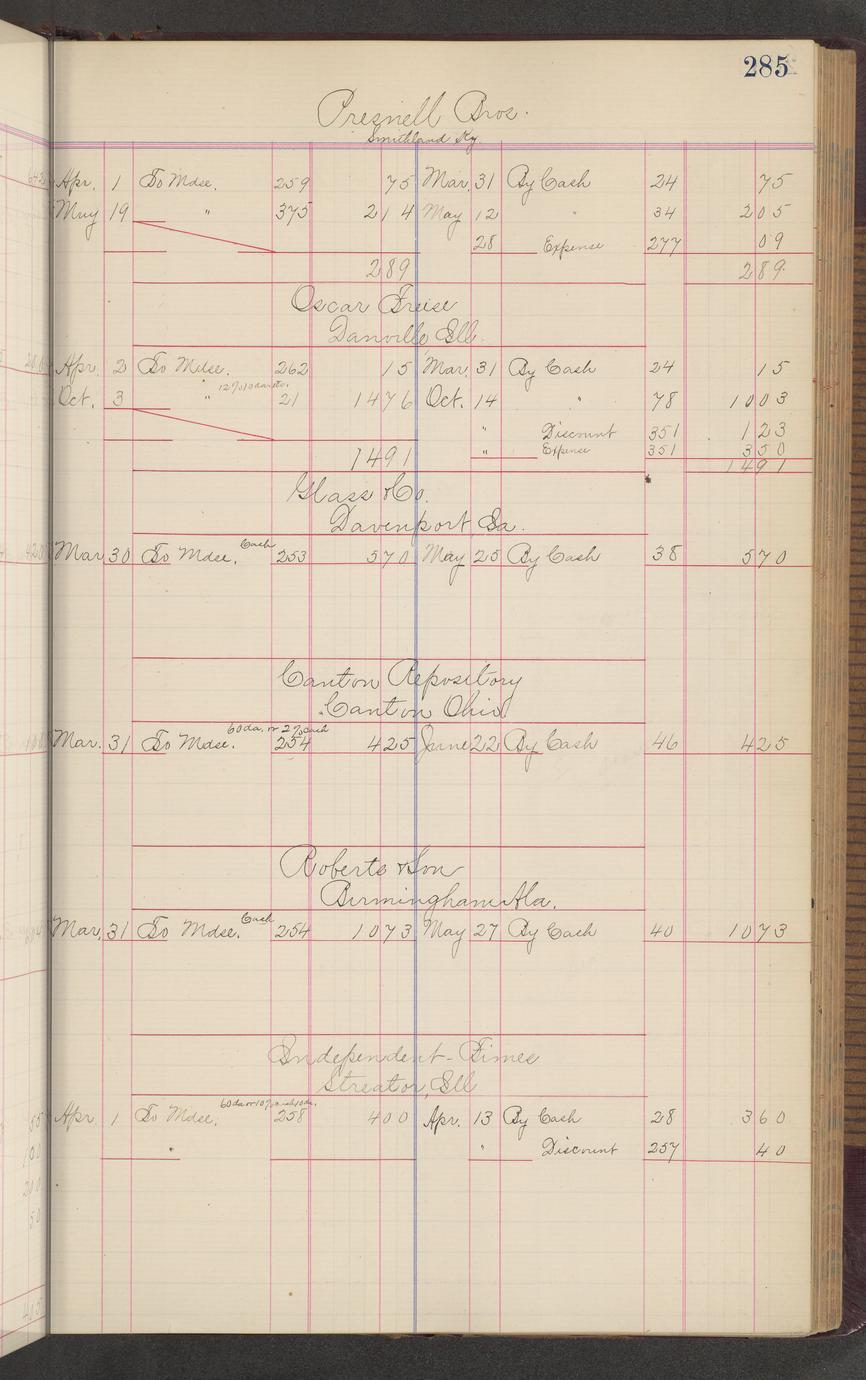 285
Presnell Bros.
Smithland Ky.
Apr. 1 To Mdse. 259 75 Mar. 31 By Cash 24 75
May 19 " 375 214 May 12 " 34 205
28 Expense 277 09
289 289
Oscar Freise
Danville Ill.
Apr. 2 To Mdse. 262 15 Mar. 31 By Cash 24 15
Oct. 3 " 21 1476 Oct. 14 " 78 1003
" Discount 351 123
" Expense 351 350
1491 1491
Glass & Co.
Davenport Ia.
Mar 30 To Mdse. Cash 253 570 May 25 By Cash 38 570
Canton Repository
Canton Ohio
60 da. or 2% cash
Mar. 31 To Mdse. 254 425 June 22 By Cash 46 425
Roberts & Son
Birmingham Ala.
Mar. 31 To Mdse. Cash 254 1073 May 27 By Cash 40 1073
Independent-Times
Streator, Ill
60 da or 10% cash 10 da.
Apr 1 To Mdse. 258 400 Apr. 13 By Cash 28 360
" Discount 257 40